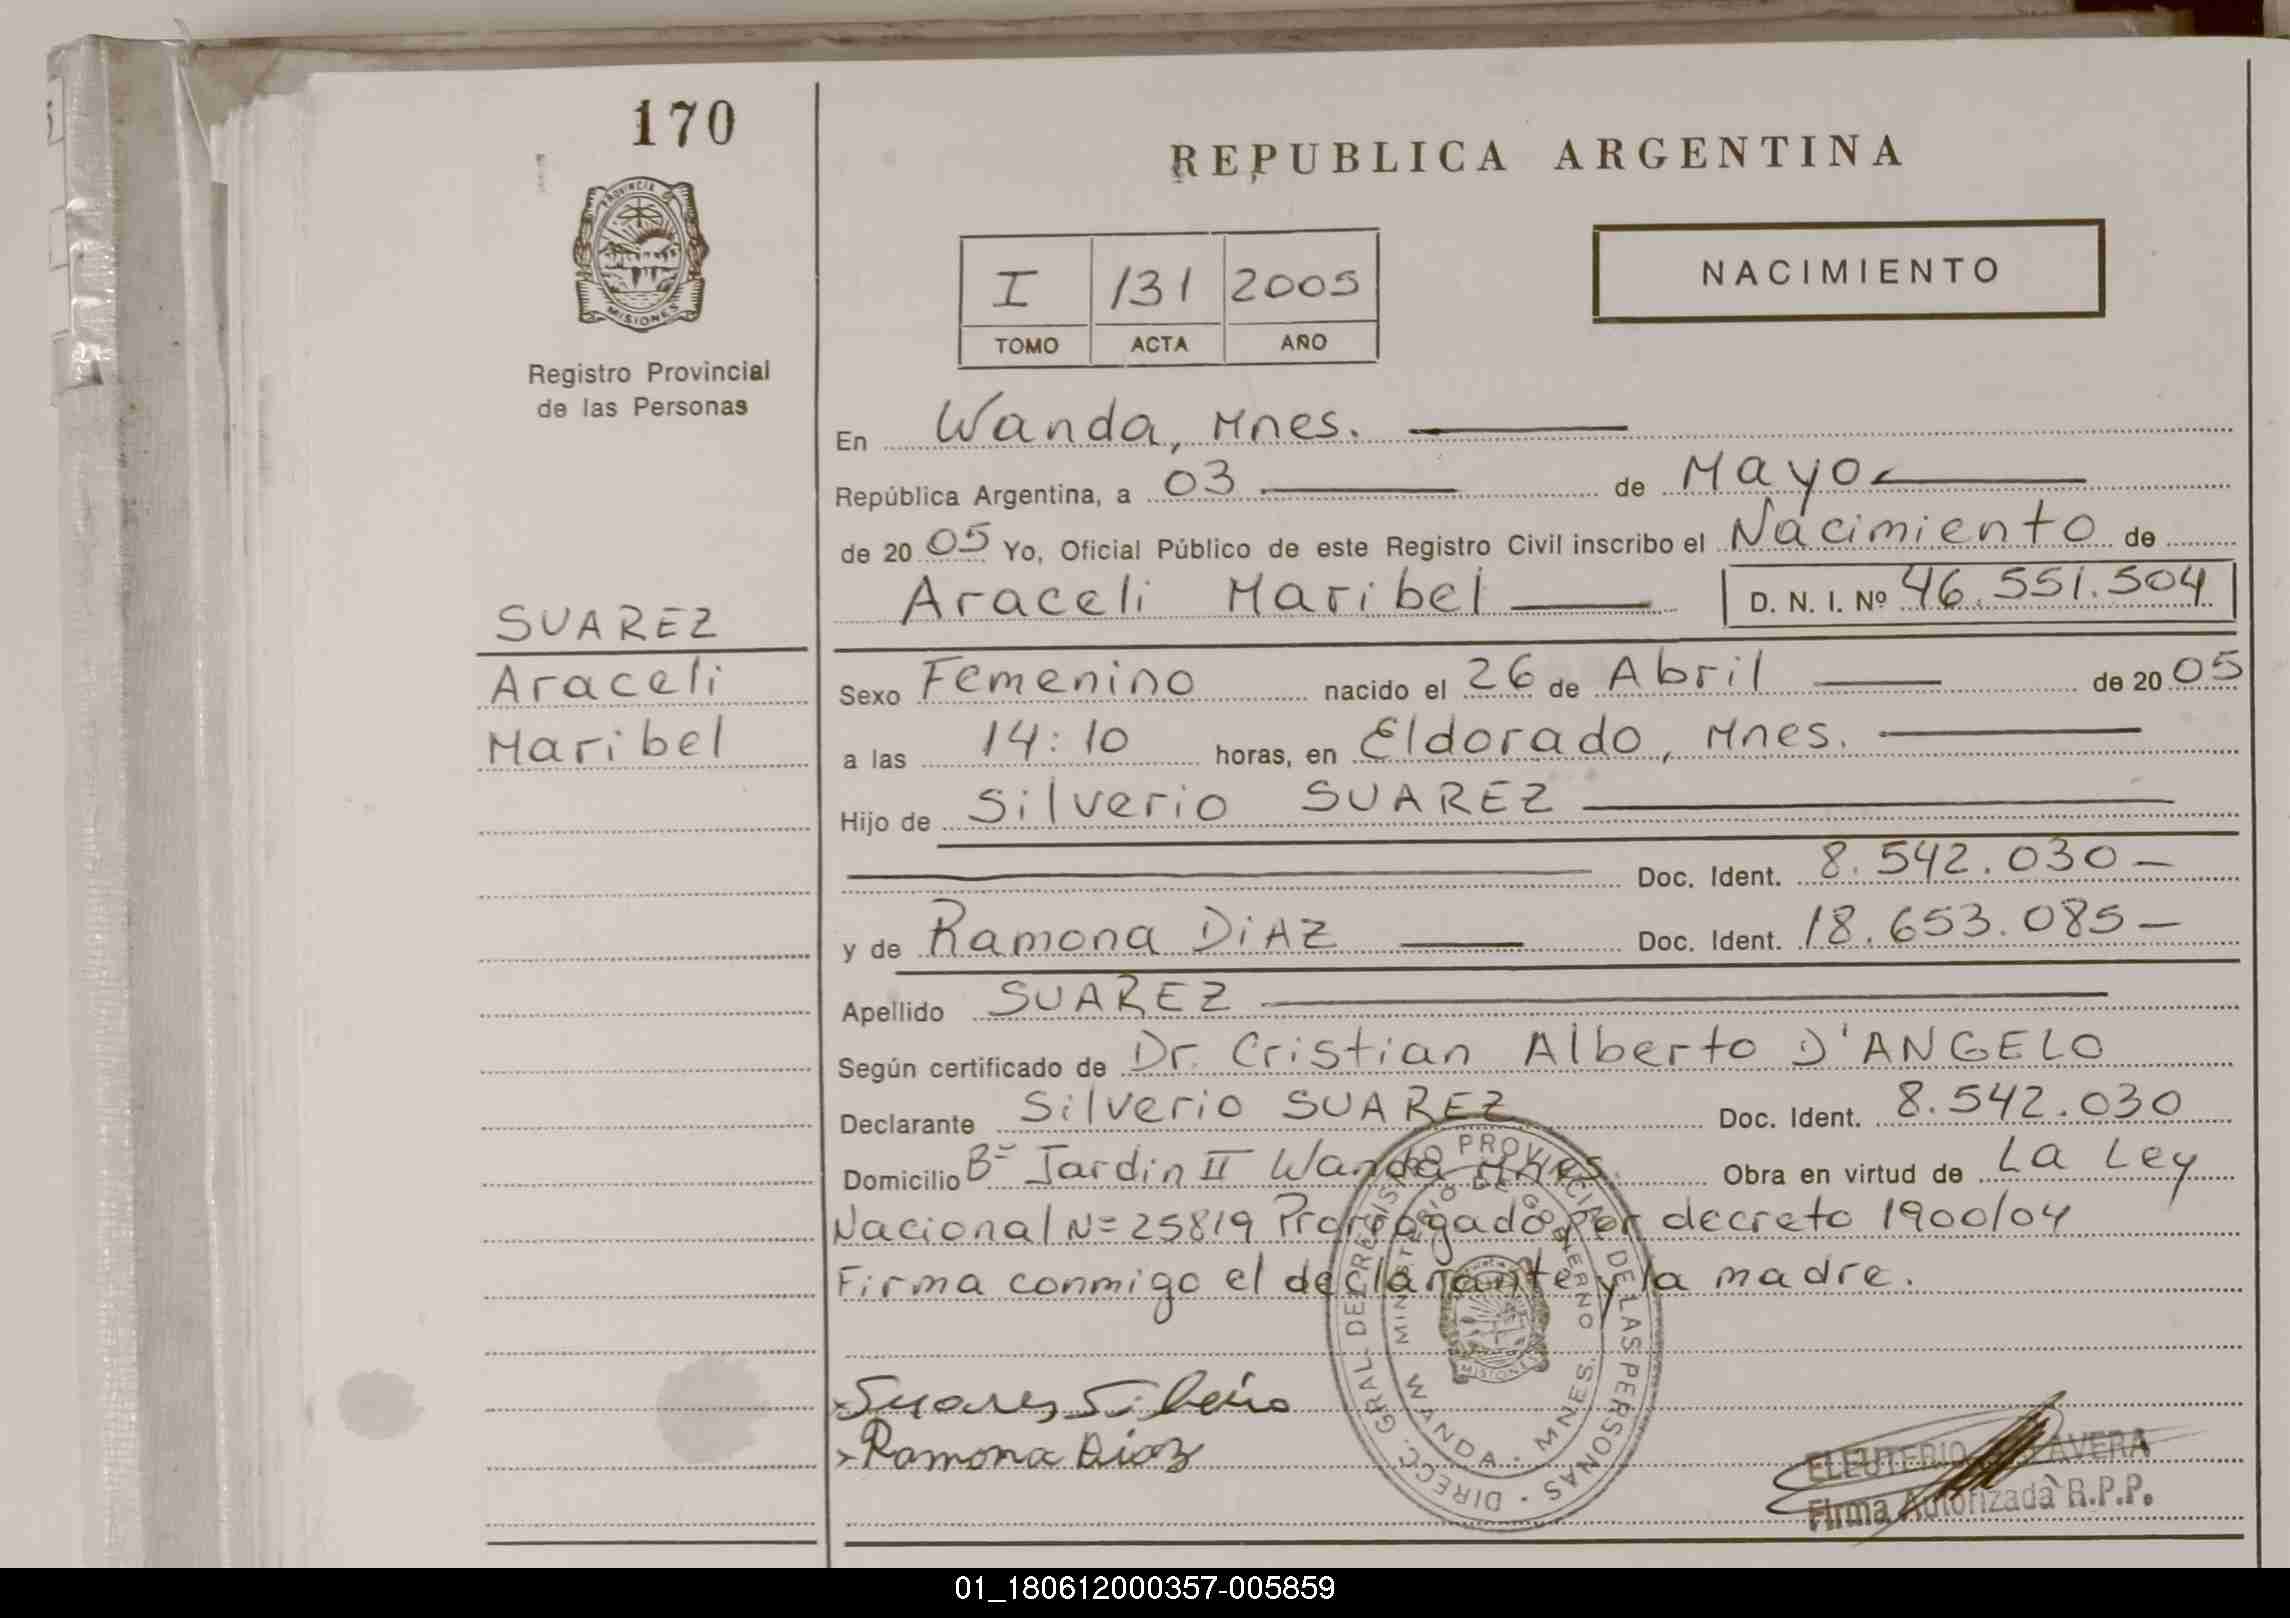 170
PROVINCIA D
MISIONES
Registro Provincial
de las Personas
SUAREZ
Araceli
Maribel
REPUBLICA ARGENTINA
NACIMIENTO
I 131 2005
TOMO ACTA AÑO
En Wanda, Mnes.
República Argentina, a 03 de Mayo
de 2005 Yo, Oficial Público de este Registro Civil inscribo el Nacimiento de
Araceli Maribel D. N. I. Nº 46.551.504
Sexo Femenino nacido el 26 de Abril de 2005
a las 14:10 horas, en Eldorado, Mnes.
Hijo de Silverio SUAREZ
Doc. Ident. 8.542.030-
y de Ramona DiAZ Doc. Ident. 18.653.085-
Apellido SUAREZ
Según certificado de Dr. Cristian Alberto D'ANGELO
Declarante Silverio SUAREZ Doc. Ident. 8.542.030
Domicilio Bº Jardin II Wanda Mnes. Obra en virtud de La Ley
Nacional Nº 25819 Prorrogado por decreto 1900/04
Firma conmigo el declarante y la madre.
DIRECC. GRAL. DEL REGISTRO PROVINCIAL DE LAS PERSONAS
MINISTERIO DE GOBIERNO
WANDA - MNES.
MISIONES
Suares Silverio
Ramona Diaz
ELEUTERIO AVERA
Firma Autorizada R.P.P.
01_180612000357-005859